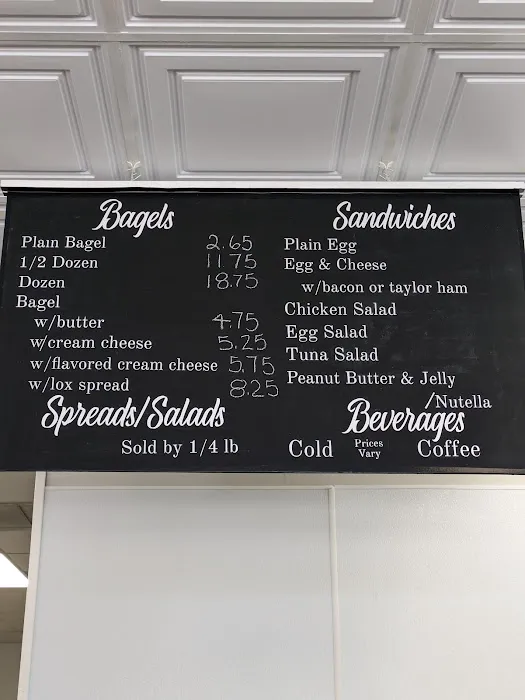 Bagels
Plain Bagel 2.65
1/2 Dozen 11.75
Dozen 18.75
Bagel
w/butter 4.75
w/cream cheese 5.25
w/flavored cream cheese 5.75
w/lox spread 8.25
Spreads/Salads
Sold by 1/4 lb
Sandwiches
Plain Egg
Egg & Cheese
w/bacon or taylor ham
Chicken Salad
Egg Salad
Tuna Salad
Peanut Butter & Jelly
/Nutella
Beverages
Cold Prices Vary Coffee